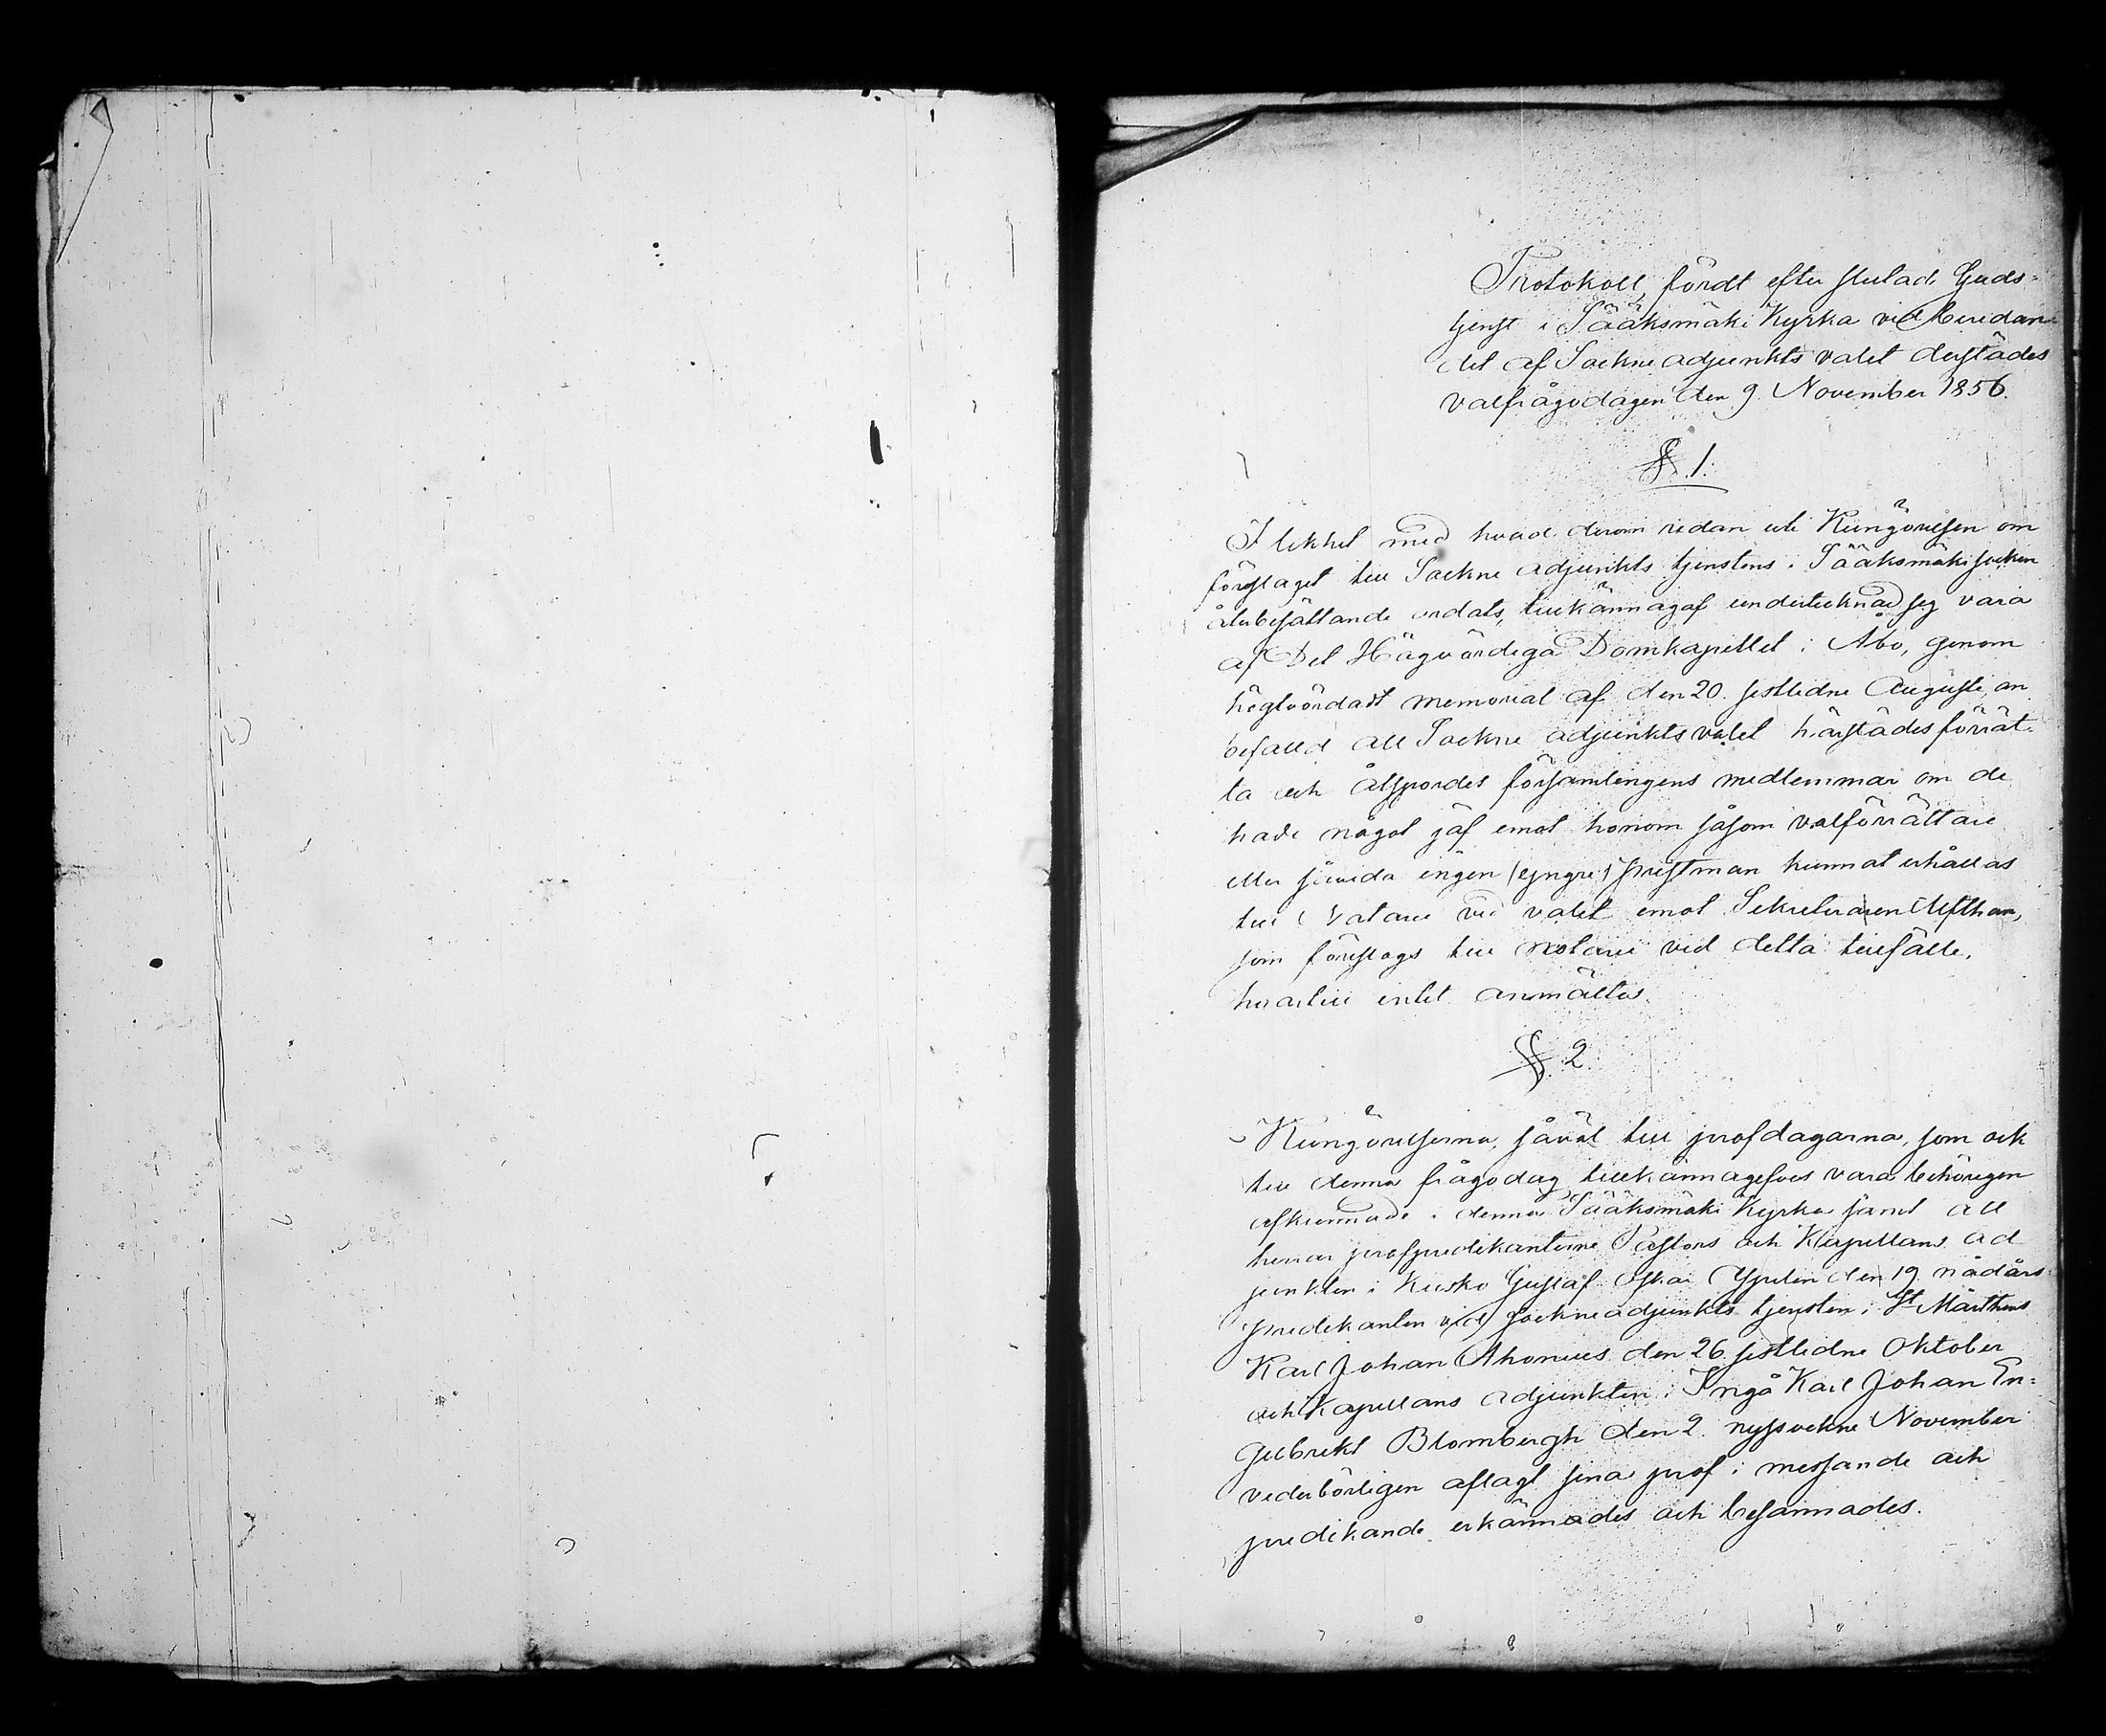 Protokoll, fördt efter slutad Guds-
tjenst i Sääksmäki Kyrka vid beredan-
det af Sockneadjunkts valet derstädes
valfrågodagen den 9 November 1856.
§ 1.
I likhet med hvad derom redan uti Kungörelsen om
förslaget till Sockne adjunkts tjenstens i Sääksmäki socken
återbesättande ordats, tillkännagaf undertecknad sig vara
af Det Högvördiga Domkapitlet i Åbo, genom
högtvördadt memorial af den 20 sistlidne Augusti, an
befalld att Sockne adjunktsvalet härstädes förrät-
ta och åtspordes församlingens medlemmar om de
hade något jäf emot honom såsom valförrättare
eller jemte ingen (yngre) prestman kunnat erhållas
till Notarie vid valet emot Sekreteraren Afthan,
som föreslogs till notarie vid detta tillfälle,
hvartill intet anmältes.
§ 2
Kungörelserna, såväl till profdagarna, som ock
till denna frågodag tillkännagefves vara behörigen
afkunnade i denna Sääksmäki Kyrka samt att
herrar profpredikanterne Pastors och Kapellans ad
junkten i Kisko Gustaf Oskar den 19 nådårs-
predikanten vid sockneadjunkts tjensten i St Mårthens
Karl Johan Ahonius den 26 sistlidne Oktober
och Kapellans adjunkten i Ingå Karl Johan En-
gelbrekt Blombergh den 2 nyssvekne November
vederbörligen aflagt sina prof i messande och
predikande erkännades och besannades.